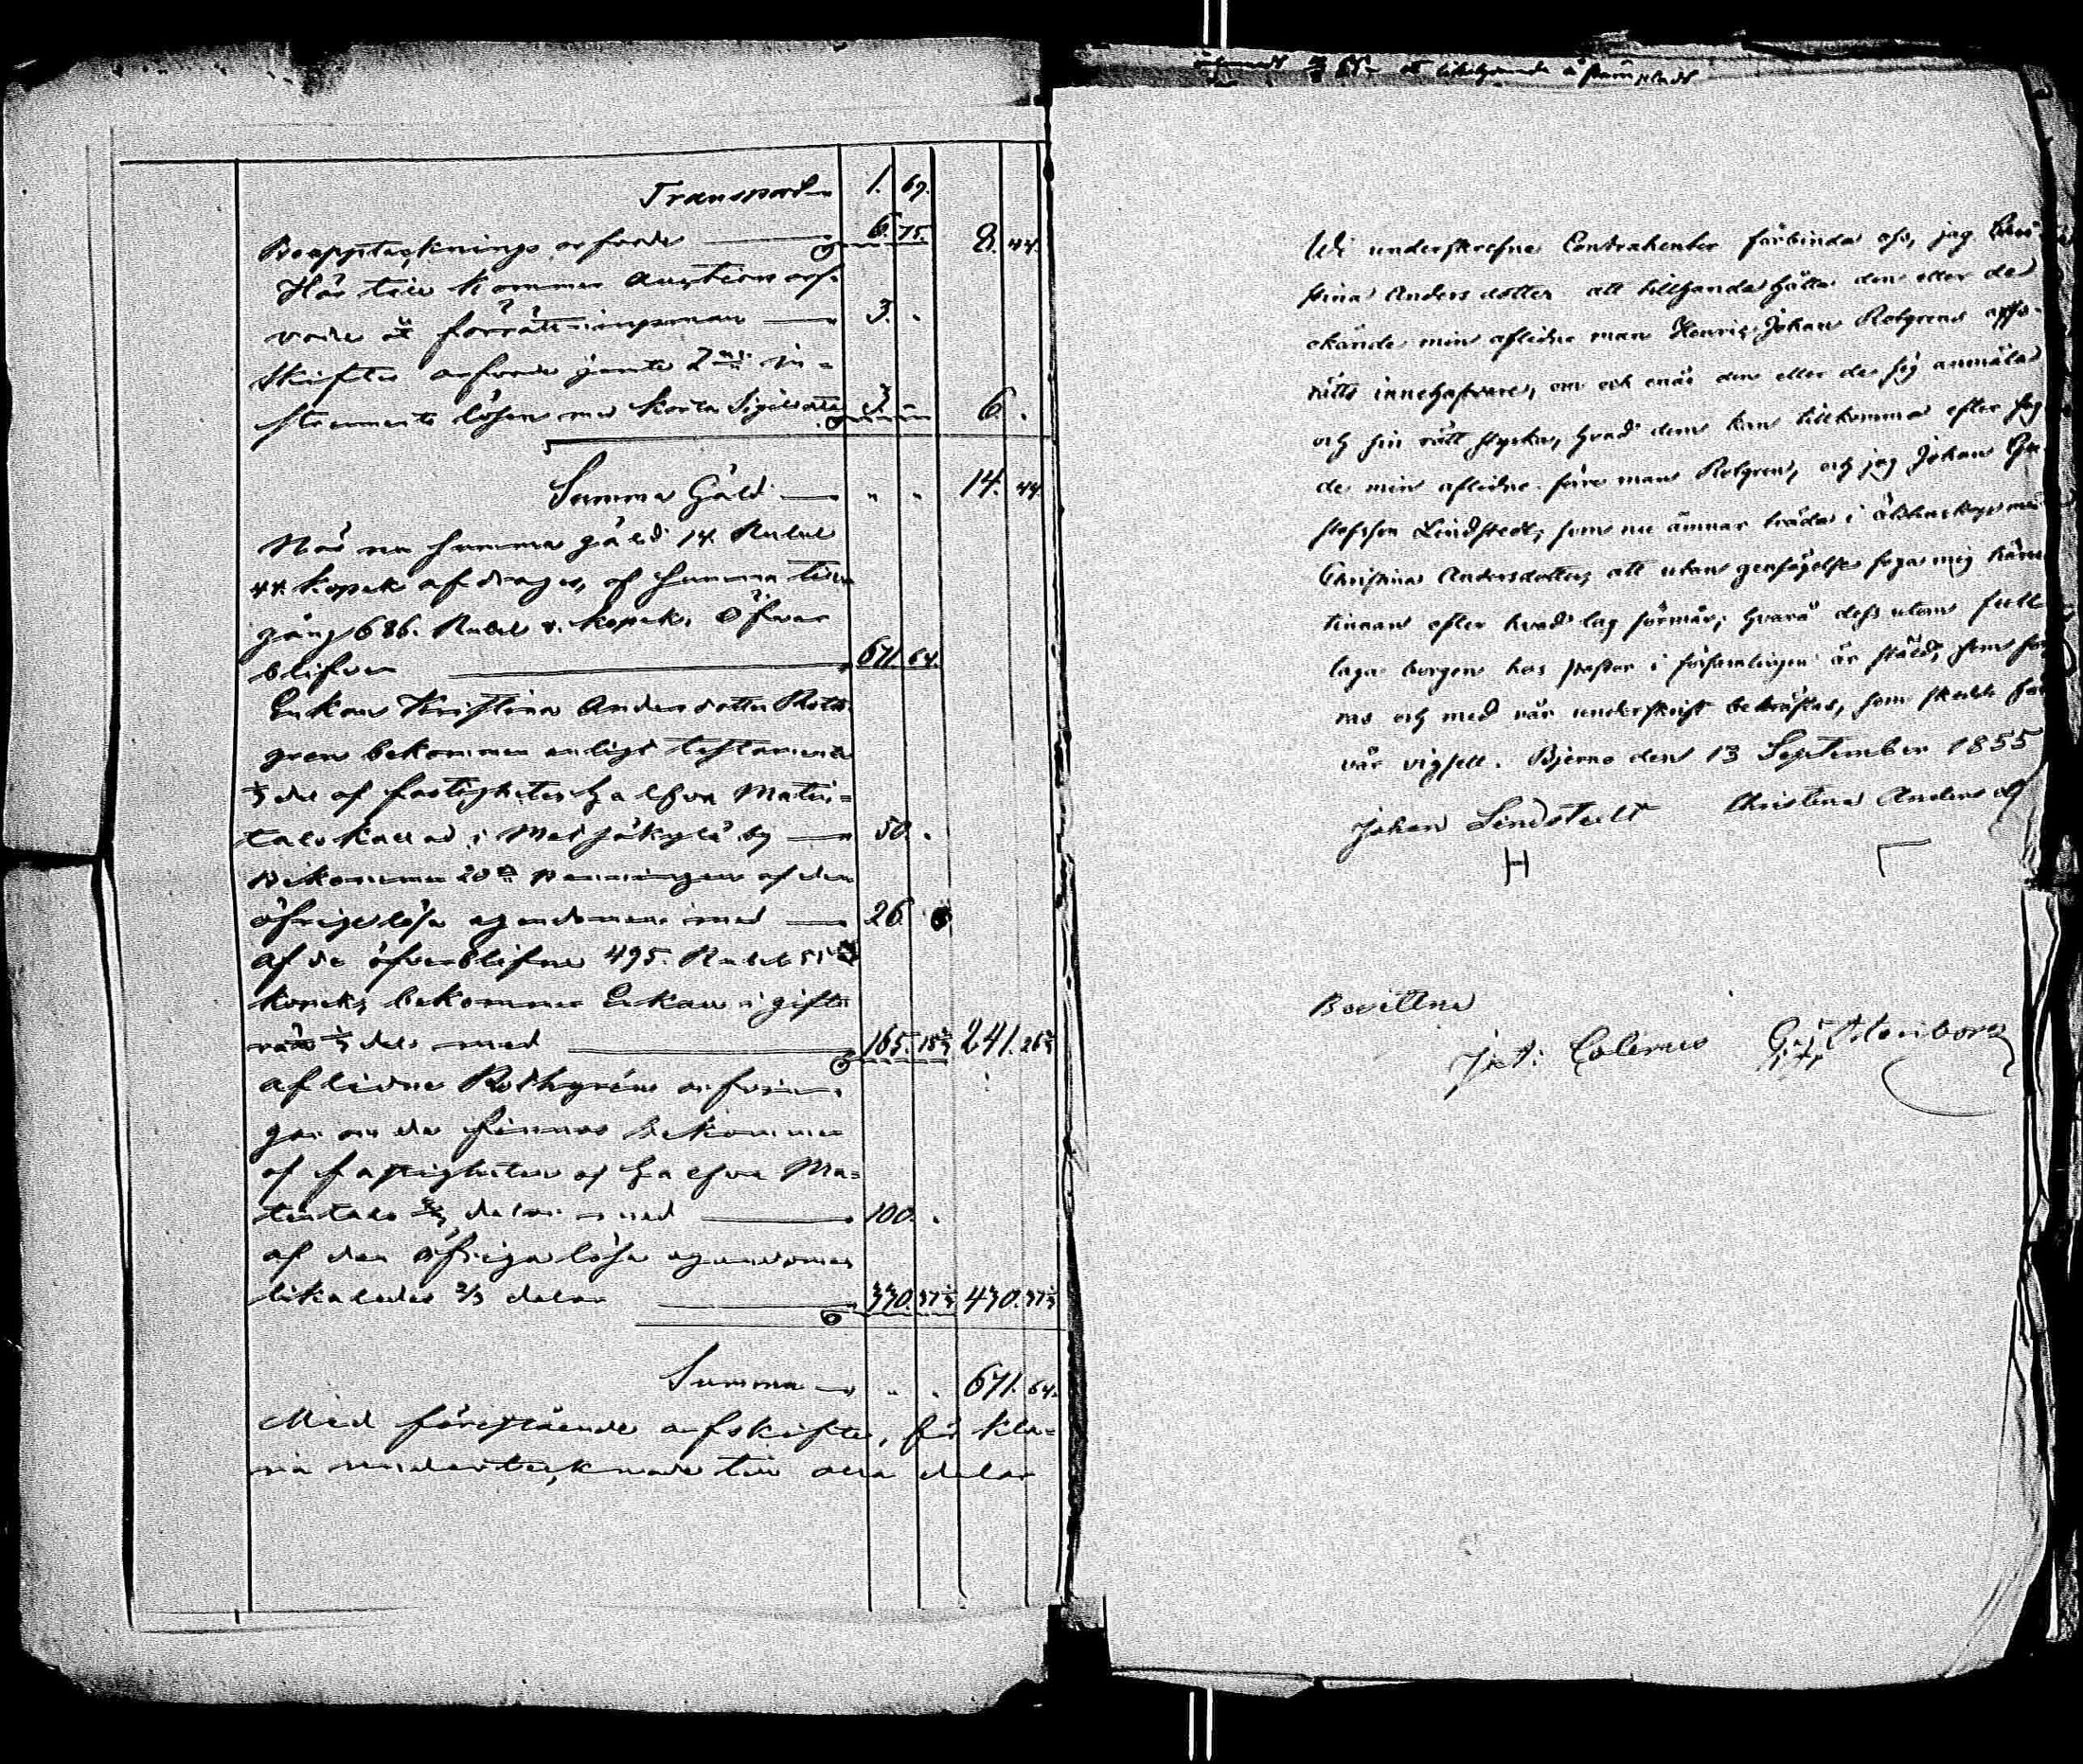 Transport 1. 69.
Boupptecknings arfvode 6. 75. 8. 44.
Här till kommer Auktions arf-
vode åt förrättningsman 3. "
Skiftes arfvode jemte 2ne in=
struments lösen med Karta Sigillata 3. " 6. "
Summa Gäld " " 14. 44.
När nu summa gäld 14. Rubel
44. Kopek afdrages, af summa till
gång 686. Rubel 8. Kopek, Öfver
blifver 671. 64.
Enkan Kristina Andersdotter Roth-
gren bekommer enligt testamente
1/3 del af fastigheten halfva Man-
talskattad i Metsjäkylä by 50. "
Bekommer 20de penningen af den
öfriga lösa egendomen med 26.
af de öfverblifne 495. Rubel 55
kopek, bekommer Enkan i gifto
rätt 1/3 del med 165. 18 1/3 241. 26 1/3
aflidne Rothgréns arfvin-
gar om de finnas bekommer
af fastigheten af halfva Ma=
ntals 2/3 delar med 100. "
af den öfriga lösa egendomen
likaledes 2/3 delar 330. 37 2/3 430. 37 2/3
Summa " " 671. 64.
Med förestående arfskifte, för kla=
ra undertecknade till alla delar
Wi underskrefne Contrahenter förbinda oss, jag Chri
stina Andersdotter att tillhandahålla den eller de
okände min aflidne man Henric Johan Rotgrens arfs-
rätts innehafvare, om och enär den eller de sig anmäla
och sin rätt styrka, hvad dem kan tillkomma efter sag
de min aflidne förre man Rotgren, och jag Johan Gu
stafsson Lindstedt, som nu ämnar träda i äktenskap med
Christina Andersdotter, att utan gensägelse foga mig härut
innan efter hvad lag förmår; hvarå dess utom full
laga borgen hos pastor i församlingen är stäld, som
och med vår underskrift bekräftas, som skedde för
vår vigsell. Bjerno den 13 September 1855
Johan Lindstedt Christina Anders d
H
Bevittna